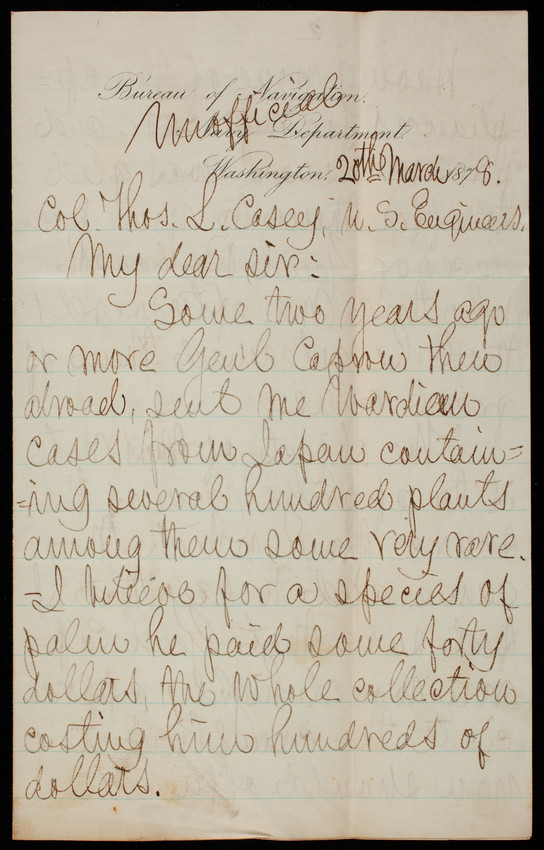 Bureau of Navigation.
Unofficial
Navy Department.
Washington, 20th March 1878.
Col. Thos. L. Casey, U. S. Engineers.
My dear sir:
Some two years ago
or more Gen'l Capron then
abroad, sent me Wardian
cases from Japan contain=
=ing several hundred plants
among them some very rare.
=I believe for a species of
palm he paid some forty
dollars, the whole collection
costing him hundreds of
dollars.